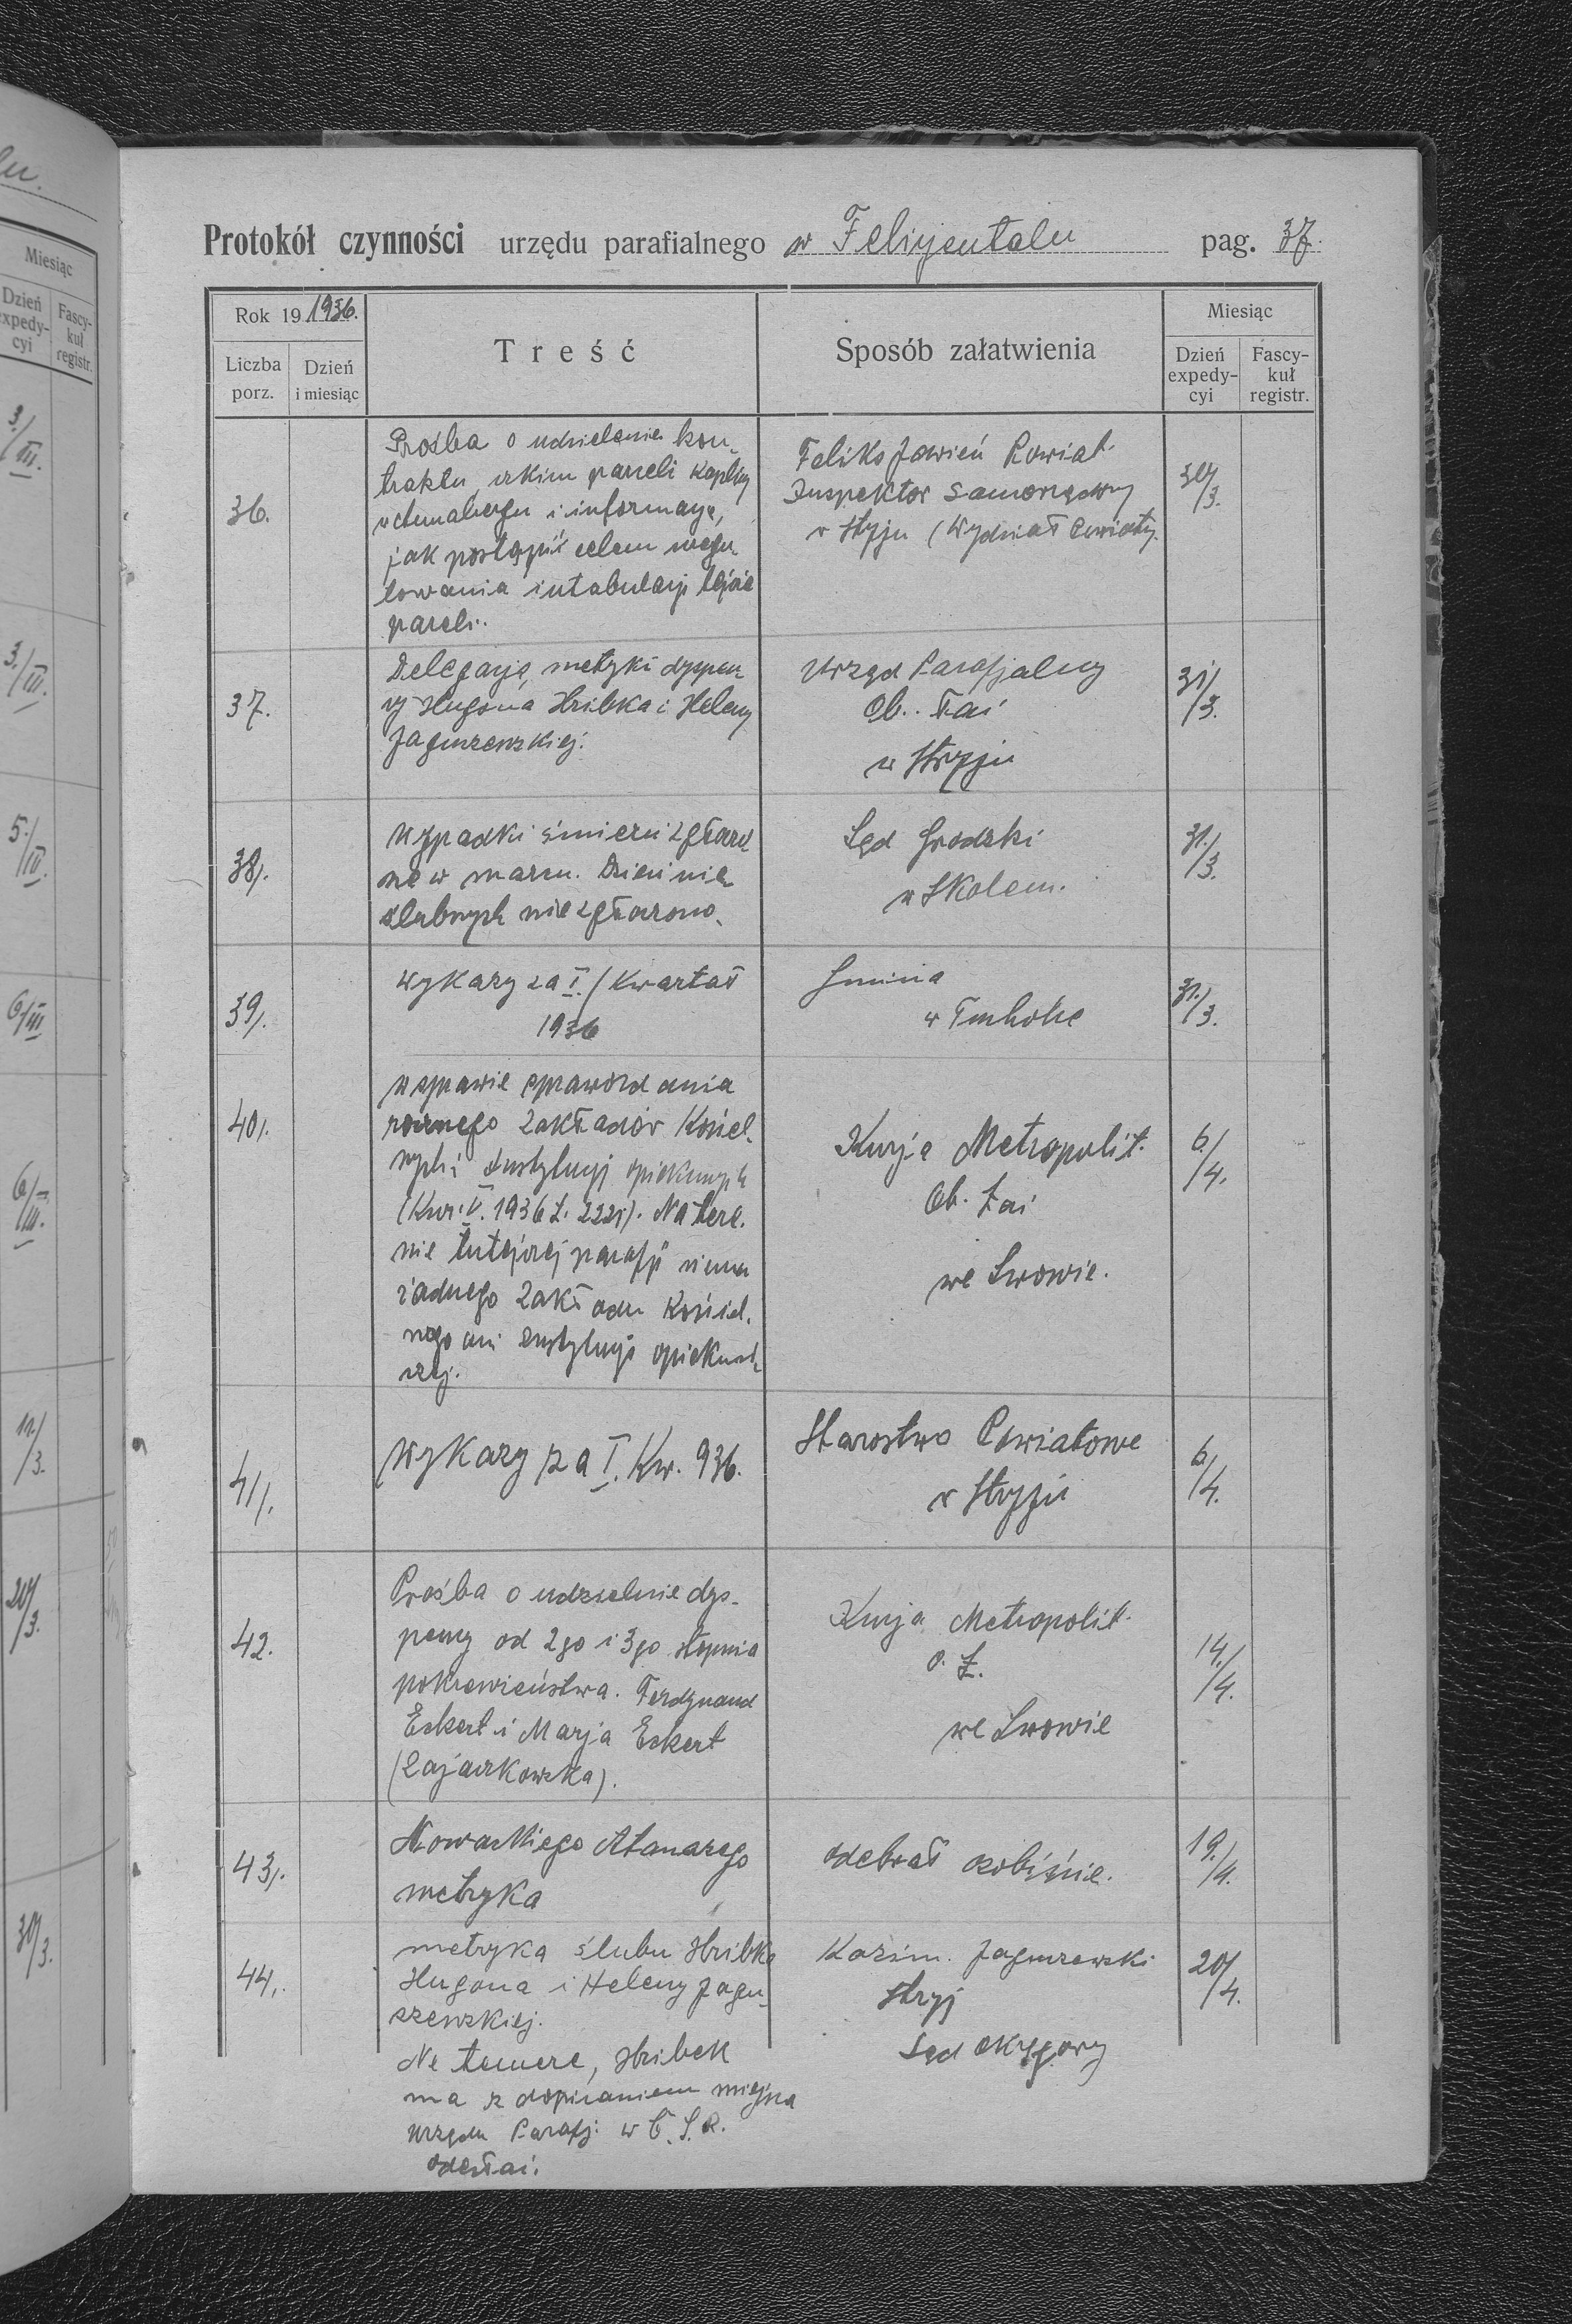 Protokół czynności urzędu parafialnego w Felizjentalu pag. 37.
Rok 19 1936.
Liczba porz.
Dzień i miesiąc
Treść
Sposób załatwienia
Miesiąc
Dzień expedycyi
Fascykuł registr.
36.
Prośba o udzielenie kon-
traktu, parceli kaplicy
i informację,
jak postąpić celem uregu-
lowania intabulacji tejże
parceli.
Feliks Jawień Powiat.
Inspektor Samorządowy
w Stryju (Wydział Powiatowy
30/3.
37.
Delegację, metryki dyspen-
zy Hugona Hribka i Heleny
Jaguszewskiej.
Urząd Parafjalny
Ob. Łać
w Stryju
31/3.
38/.
Wypadki śmierci zgłaszo-
ne w marcu. Dzieci nie-
ślubnych nie zgłaszono.
Sąd Grodzki
w Skolem.
31./3.
39/.
Wykazy za I./Kwartał
1936
Gmina
w Tucholce
31./3.
40/.
W sprawie sprawozdania
rocznego Zakładów Kościel-
nych i Instytucyj opiekuńczych
(Kur. V. 1936 L. 2221). Na tere-
nie tutejszej parafji niema
żadnego Zakładu Kościel-
nego ani Instytucji opiekuń-
czej.
Kurja Metropolit.
Ob. Łać
we Lwowie.
6./4.
41/.
Wykazy za I. Kw. 936.
Starostwo Powiatowe
w Stryju
6./4.
42.
Prośba o udzielenie dys-
penzy od 2go i 3go stopnia
pokrewieństwa. Ferdynand
Eckert i Marja Eckert
(Zajączkowska).
Kurja Metropolit.
O. Ł.
we Lwowie
14./4.
43/.
Nowackiego Atanazego
metryka
odebrał osobiście.
19./4.
44/.
metryka ślubu Hribka
Hugona i Heleny Jagu-
szewskiej.
Ne temere, Hribek
ma z dopisaniem miejsca
Urzędu Parafj. w Č.S.R.
odesłać.
Kazim. Jaguszewski
Stryj
Sąd okręgowy
20/4.
Miesiąc
Dzień expedycyi
Fascykuł registr.
3./III.
3./III.
5./III.
6/III
6/III.
12./3.
20/3.
30/3.